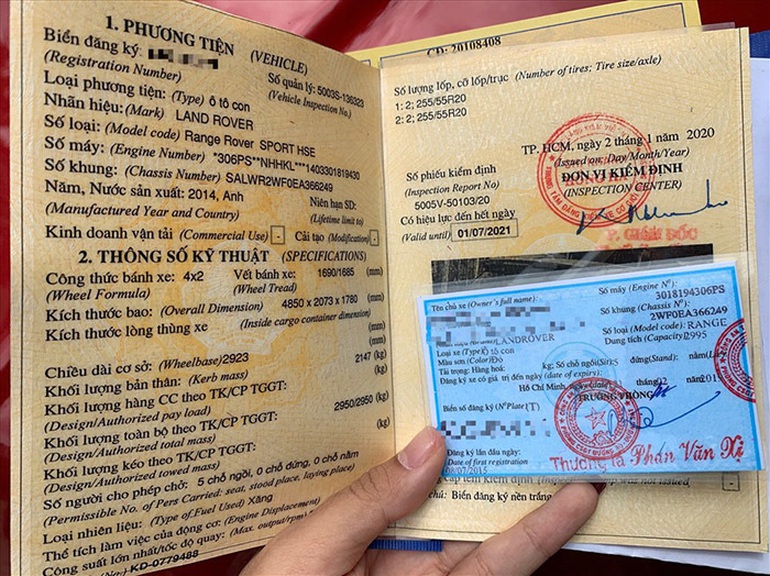 1. PHƯƠNG TIỆN (VEHICLE)
Biển đăng ký:
(Registration Number)
Số quản lý: 5003S-136323
(Vehicle Inspection No.)
Loại phương tiện: (Type) ô tô con
Nhãn hiệu: (Mark) LAND ROVER
Số loại: (Model code) Range Rover SPORT HSE
Số máy: (Engine Number) *306PS**NHHKL***1403301819430
Số khung: (Chassis Number) SALWR2WF0EA366249
Năm, Nước sản xuất: 2014, Anh Niên hạn SD:
(Manufactured Year and Country) (Lifetime limit to)
Kinh doanh vận tải (Commercial Use) - Cải tạo (Modification) -
2. THÔNG SỐ KỸ THUẬT (SPECIFICATIONS)
Công thức bánh xe: 4x2 Vết bánh xe: 1690/1685 (mm)
(Wheel Formula) (Wheel Tread)
Kích thước bao: (Overall Dimension) 4850 x 2073 x 1780 (mm)
Kích thước lòng thùng xe (Inside cargo container dimension)
(mm)
Chiều dài cơ sở: (Wheelbase) 2923 (mm)
Khối lượng bản thân: (Kerb mass) 2147 (kg)
Khối lượng hàng CC theo TK/CP TGGT:
(Design/Authorized pay load) (kg)
Khối lượng toàn bộ theo TK/CP TGGT: 2950/2950 (kg)
(Design/Authorized total mass)
Khối lượng kéo theo TK/CP TGGT: (kg)
(Design/Authorized towed mass)
Số người cho phép chở: 5 chỗ ngồi, 0 chỗ đứng, 0 chỗ nằm
(Permissible No. of Pers Carried: seat, stood place, laying place)
Loại nhiên liệu: (Type of Fuel Used) Xăng
Thể tích làm việc của động cơ: (Engine Displacement)
Công suất lớn nhất/tốc độ quay: (Max. output/rpm)
(No.) KD-0779488
CD: 20108408
Số lượng lốp, cỡ lốp/trục (Number of tires; Tire size/axle)
1: 2; 255/55R20
2: 2; 255/55R20
TP. HCM, ngày 2 tháng 1 năm 2020
(Issued on: Day/Month/Year)
Số phiếu kiểm định ĐƠN VỊ KIỂM ĐỊNH
(Inspection Report No) (INSPECTION CENTER)
5005V-50103/20
Có hiệu lực đến hết ngày
(Valid until) 01/07/2021
P. GIÁM ĐỐC
Tên chủ xe (Owner's full name):
Số máy (Engine Nº): 3018194306PS
Số khung (Chassis Nº): 2WF0EA366249
LANDROVER Số loại (Model code): RANGE
Loại xe (Type) ô tô con Dung tích (Capacity) 2995
Màu sơn (Color) Đỏ
Tải trọng: Hàng hoá: kg; Số chỗ ngồi (Sit) 5 đứng (Stand): nằm
Đăng ký xe có giá trị đến ngày (date of expiry):
Hồ Chí Minh, ngày tháng 02 năm 201
TRƯỞNG PHÒNG
Biển số đăng ký (Nº Plate) (T)
Đăng ký lần đầu ngày:
Date of first registration
08/07/2015
Thượng tá Phan Văn Xị
cấp tem kiểm định
was not issued) -
chú: Biển đăng ký nền trắng